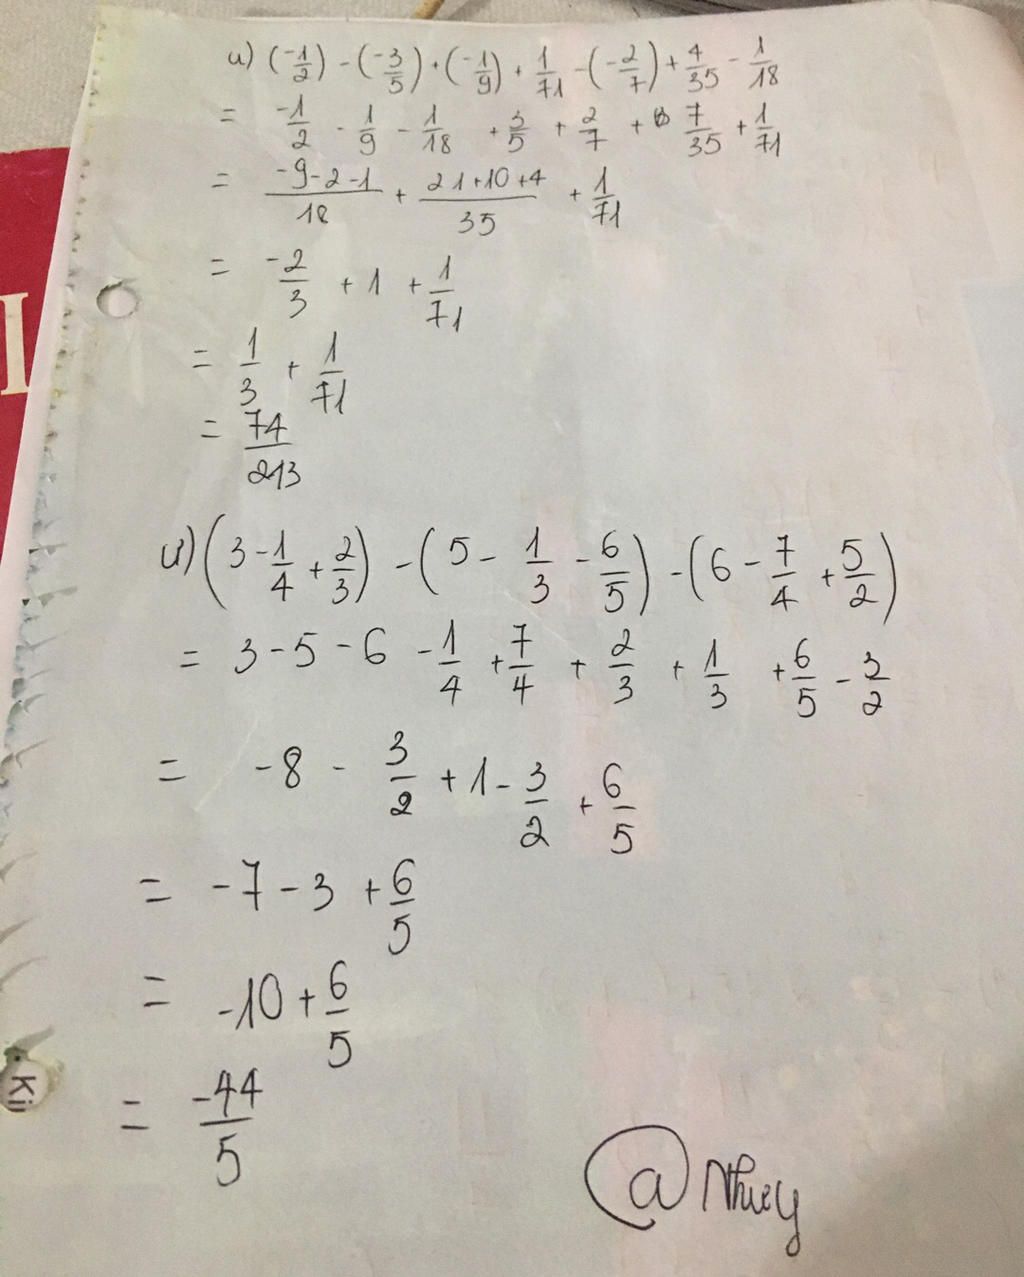 u) (-1/2) - (-3/5) + (-1/9) + 1/71 - (-2/7) + 4/35 - 1/18
= -1/2 - 1/9 - 1/18 + 3/5 + 2/7 + 7/35 + 1/71
= (-9-2-1)/18 + (21+10+4)/35 + 1/71
= -2/3 + 1 + 1/71
= 1/3 + 1/71
= 74/213
ư) (3 - 1/4 + 2/3) - (5 - 1/3 - 6/5) - (6 - 7/4 + 5/2)
= 3 - 5 - 6 - 1/4 + 7/4 + 2/3 + 1/3 + 6/5 - 3/2
= -8 - 3/2 + 1 - 3/2 + 6/5
= -7 - 3 + 6/5
= -10 + 6/5
= -44/5
I
Ki